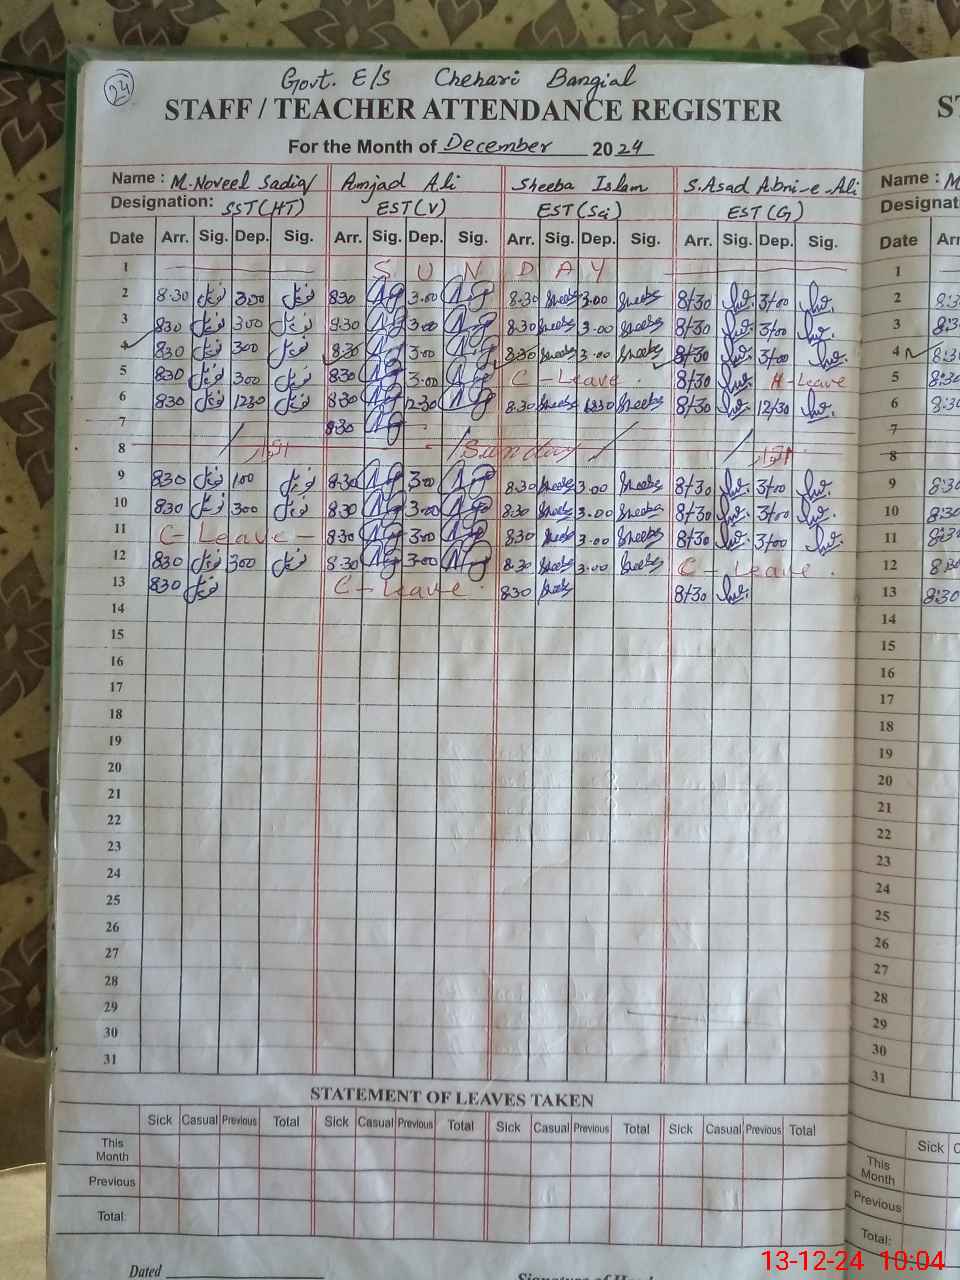 24
Govt. E/S Chehari Bangial
STAFF / TEACHER ATTENDANCE REGISTER
For the Month of December 2024
Name : M. Noveel Sadiq Amjad Ali Sheeba Islam S. Asad Abni-e-Ali
Designation: SST(HT) EST(V) EST(Sci) EST(G)
Date Arr. Sig. Dep. Sig. Arr. Sig. Dep. Sig. Arr. Sig. Dep. Sig. Arr. Sig. Dep. Sig.
1 SUNDAY
2 8:30 300 830 3.00 8:30 Sheeba 3.00 Sheeba 8/30 3/00
3 830 300 8:30 3.00 8:30 Sheeba 3.00 Sheeba 8/30 3/00
4 830 300 8:30 3.00 8:30 Sheeba 3.00 Sheeba 8/30 3/00
5 830 300 830 3.00 C-Leave. 8/30 H-Leave
6 830 1230 8:30 12:30 8:30 Sheeba 1230 Sheeba 8/30 12/30
7 8:30
8 اتوار Sunday اتوار
9 830 100 8:30 300 8:30 Sheeba 3.00 Sheeba 8/30 3/00
10 830 300 8:30 3:00 8:30 Sheeba 3.00 Sheeba 8/30 3/00
11 C-Leave- 8:30 3:00 8:30 Sheeba 3.00 Sheeba 8/30 3/00
12 830 300 8:30 3:00 8:30 Sheeba 3.00 Sheeba C-Leave.
13 830 C-Leave. 830 Sheeba 8/30
14
15
16
17
18
19
20
21
22
23
24
25
26
27
28
29
30
31
STATEMENT OF LEAVES TAKEN
Sick Casual Previous Total Sick Casual Previous Total Sick Casual Previous Total Sick Casual Previous Total
This Month
Previous
Total:
Dated
Name : M
Date
1
2 8:30
3 8:30
4 8:30
5 8:30
6 8:30
7
8
9 8:30
10 8:30
11 8:30
12 8:30
13 8:30
14
15
16
17
18
19
20
21
22
23
24
25
26
27
28
29
30
31
Sick
This Month
Previous
Total:
13-12-24 10:04